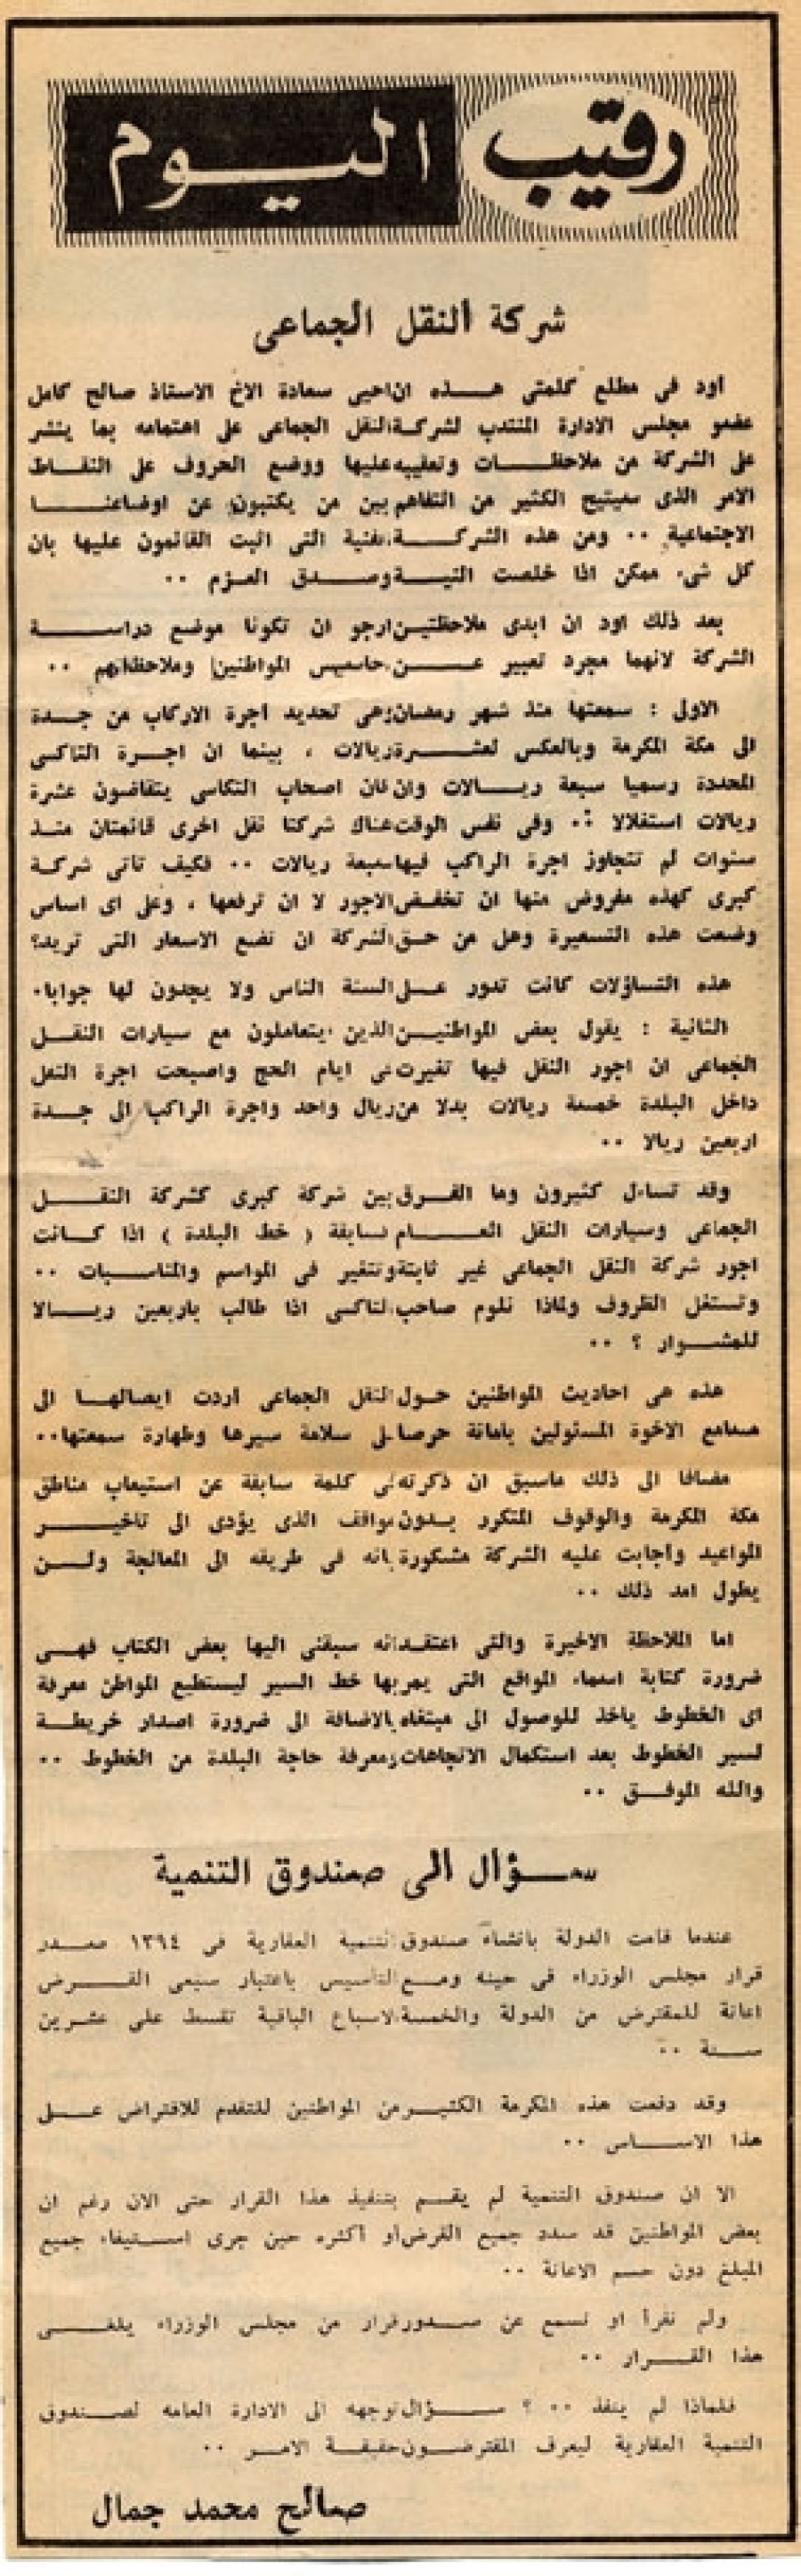 رقيب اليوم
شركة النقل الجماعى
اود فى مطلع كلمتى هـذه ان احيى سعادة الاخ الاستاذ صالح كامل
عضو مجلس الادارة المنتدب لشركة النقل الجماعى على اهتمامه بما ينشر
على الشركة من ملاحظـات وتعقيبه عليها ووضع الحروف على النقـاط
الامر الذى سيتيح الكثير من التفاهم بين من يكتبون عن اوضاعنـا
الاجتماعية ٠٠ ومن هذه الشركـة الفنية التى اثبت القائمون عليها بان
كل شىء ممكن اذا خلصت النيـة وصـدق العـزم ٠٠
بعد ذلك اود ان ابدى ملاحظتين ارجو ان تكونا موضع دراسـة
الشركة لانهما مجرد تعبير عـن احاسيس المواطنين وملاحظاتهم ٠٠
الاول : سمعتها منذ شهر رمضان وهى تحديد اجرة الاركاب من جـدة
الى مكة المكرمة وبالعكس لعشـرة ريالات ، بينما ان اجـرة التاكسى
المحددة رسميا سبعة ريـالات وان كان اصحاب التكاسى يتقاضون عشرة
ريالات استغلالا ٠٠ وفى نفس الوقت هناك شركتا نقل اخرى قائمتان منـذ
سنوات لم تتجاوز اجرة الراكب فيها سبعة ريالات ٠٠ فكيف تاتى شركـة
كبرى كهذه مفروض منها ان تخفـض الاجور لا ان ترفعها ، وعلى اى اساس
وضعت هذه التسعيرة وهل من حـق الشركة ان تضع الاسعار التى تريد؟
هذه التساؤلات كانت تدور عـلى السنة الناس ولا يجدون لها جوابا٠
الثانية : يقول بعض المواطنيـن الذين يتعاملون مع سيارات النقـل
الجماعى ان اجور النقل فيها تغيرت فى ايام الحج واصبحت اجرة النقل
داخل البلدة خمسة ريالات بدلا من ريال واحد واجرة الراكب الى جـدة
اربعين ريالا ٠٠
وقد تساءل كثيرون وما الفـرق بين شركة كبرى كشركة النقـل
الجماعى وسيارات النقل العـام السابقة ( خط البلدة ) اذا كـانت
اجور شركة النقل الجماعى غير ثابتة وتتغير فى المواسم والمناسـبات ٠٠
وتستغل الظروف ولماذا نلوم صاحب التاكسى اذا طالب باربعين ريـالا
للمشـوار ؟ ٠٠
هذه هى احاديث المواطنين حـول النقل الجماعى اردت ايصالهـا الى
مسامع الاخوة المسئولين بامانة حرصا على سلامة سيرها وطهارة سمعتها٠٠
مضافا الى ذلك ماسبق ان ذكرته فى كلمة سابقة عن استيعاب مناطق
مكة المكرمة والوقوف المتكرر بـدون مواقف الذى يؤدى الى تاخيـر
المواعيد واجابت عليه الشركة مشكورة بانه فى طريقه الى المعالجة ولـن
يطول امد ذلك ٠٠
اما الملاحظة الاخيرة والتى اعتقـد انه سبقنى اليها بعض الكتاب فهـى
ضرورة كتابة اسماء المواقع التى يمر بها خط السير ليستطيع المواطن معرفة
اى الخطوط ياخذ للوصول الى مبتغاه بالاضافة الى ضرورة اصدار خريطـة
لسير الخطوط بعد استكمال الاتجاهات ومعرفة حاجة البلدة من الخطوط ٠٠
والله الموفـق ٠٠
سـؤال الى صندوق التنمية
عندما قامت الدولة بانشاء صندوق التنمية العقارية فى ١٣٩٤ صـدر
قرار مجلس الوزراء فى حينه ومـع التأسيس باعتبار سبعى القـرض
اعانة للمقترض من الدولة والخمسـة الاسباع الباقية تقسط على عشـرين
سـنة ٠٠
وقد دفعت هذه المكرمة الكثيـر من المواطنين للتقدم للاقتراض عـلى
هذا الاسـاس ٠٠
الا ان صندوق التنمية لم يقـم بتنفيذ هذا القرار حتى الان رغم ان
بعض المواطنين قد سدد جميع القرض او أكثره حين جرى اسـتيفاء جميع
المبلغ دون حسم الاعانة ٠٠
ولم نقرأ او نسمع عن صـدور قرار من مجلس الوزراء يلغـى
هذا القـرار ٠٠
فلماذا لم ينفذ ٠٠ ؟ سـؤال نوجهه الى الادارة العامه لصـندوق
التنمية العقارية ليعرف المقترضـون حقيقـة الامـر ٠٠
صالح محمد جمال